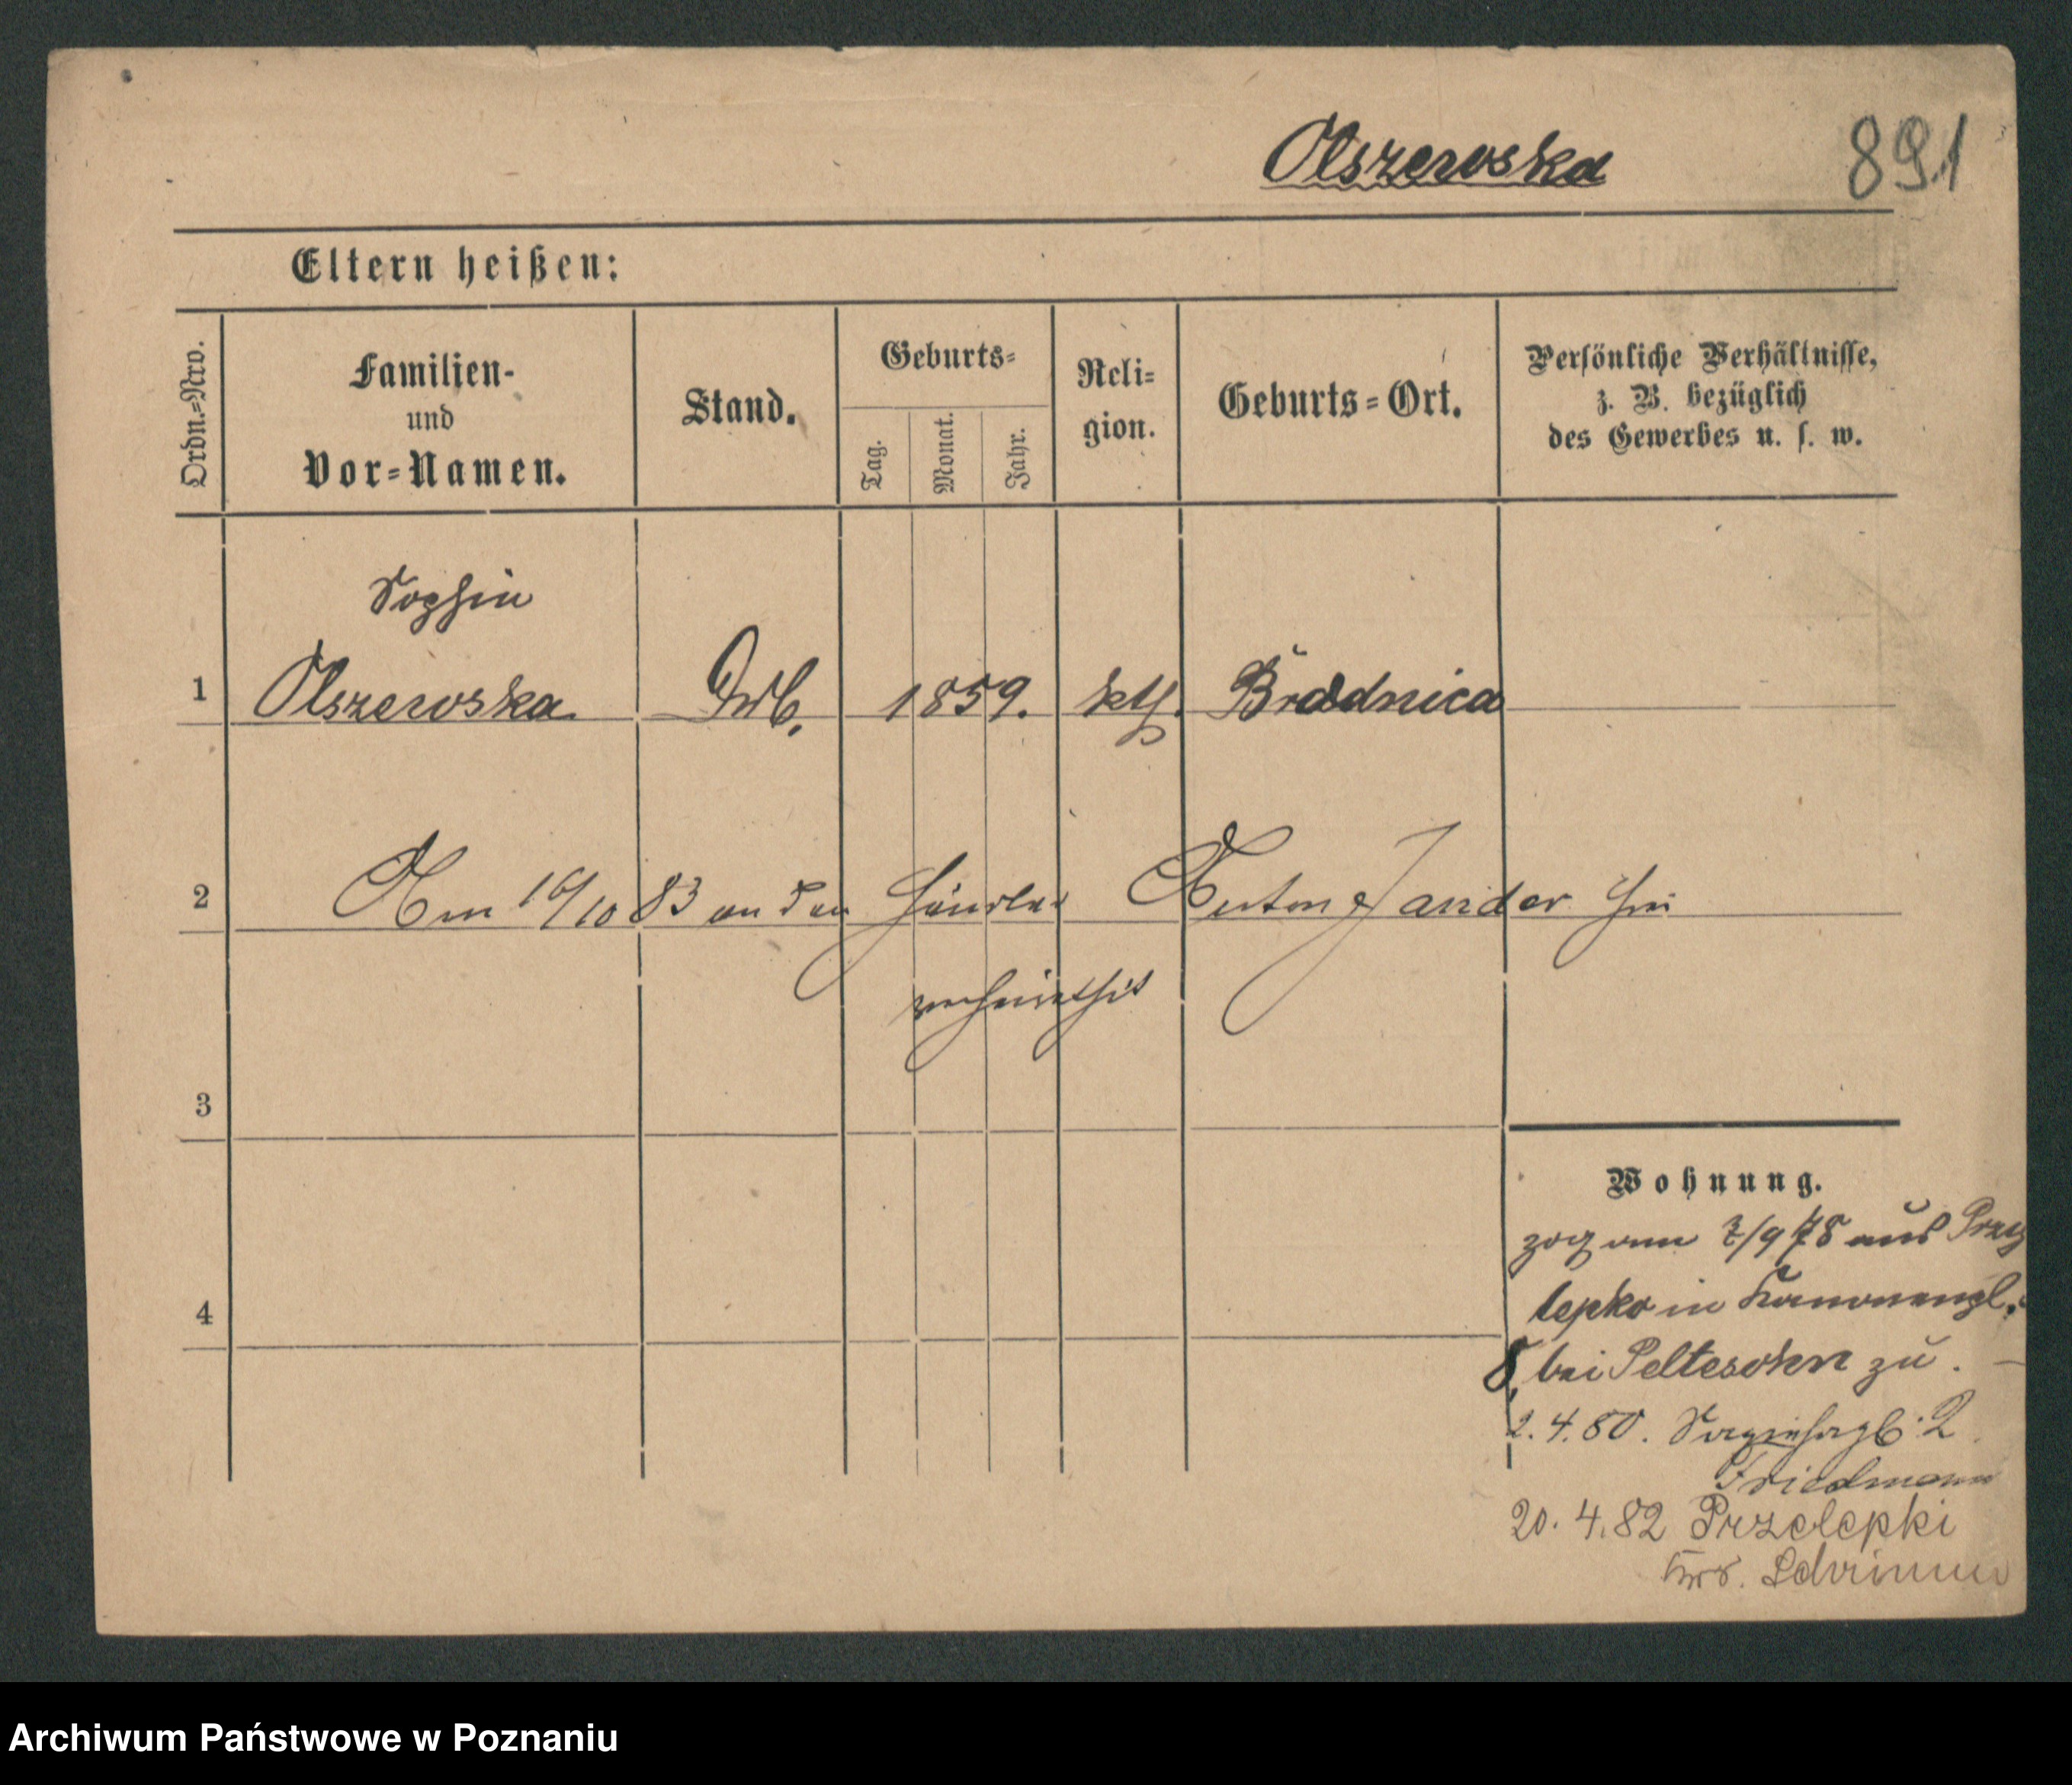 Olszewska
891
Eltern heißen:
Ordn.=Nro.
Familien-
und
Vor=Namen.
Stand.
Geburts=
Tag.
Monat.
Jahr.
Reli=
gion.
Geburts=Ort.
Persönliche Verhältnisse,
z. B. bezüglich
des Gewerbes u. s. w.
Sophie
1 Olszewska 1859. kth. Brodnica
2 Am 16/10 83 an den Händler Anton Jander hier
verheirathet
3
4
Wohnung.
zog am 2/9 78 aus Prze
lepko in Kanonengl.
8, bei Peltesohn zu.
2.4.80. Sapiehapl. 2
Friedmann
20.4.82 Przelepki
Krs. Schrimm
Archiwum Państwowe w Poznaniu